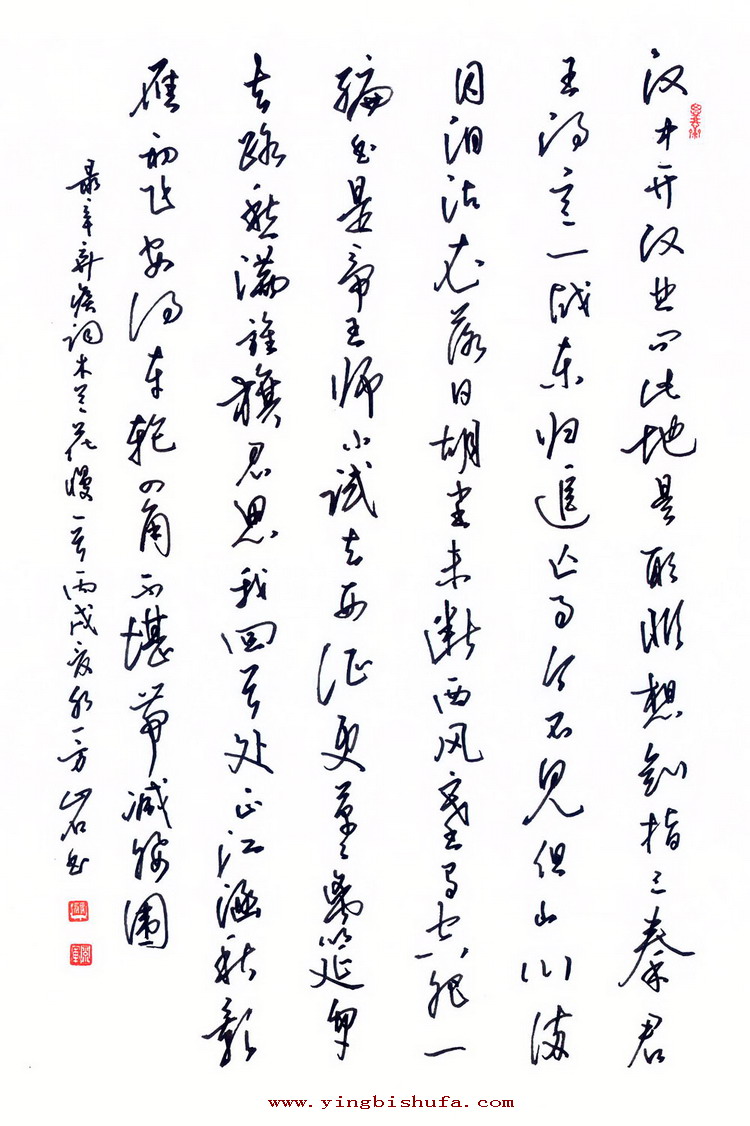 汉中开汉业问此地是耶非想剑指三秦君
王得意一战东归追亡事今不见但山川满
目泪沾衣落日胡尘未断西风塞马空肥一
编书是帝王师小试去西征更草草离筵匆
去路愁满旌旗君思我回首处正江涵秋影
雁初飞安得车轮四角不堪带减腰围
录辛弃疾词木兰花慢一首丙戌夏方岩书
www.yingbishufa.com